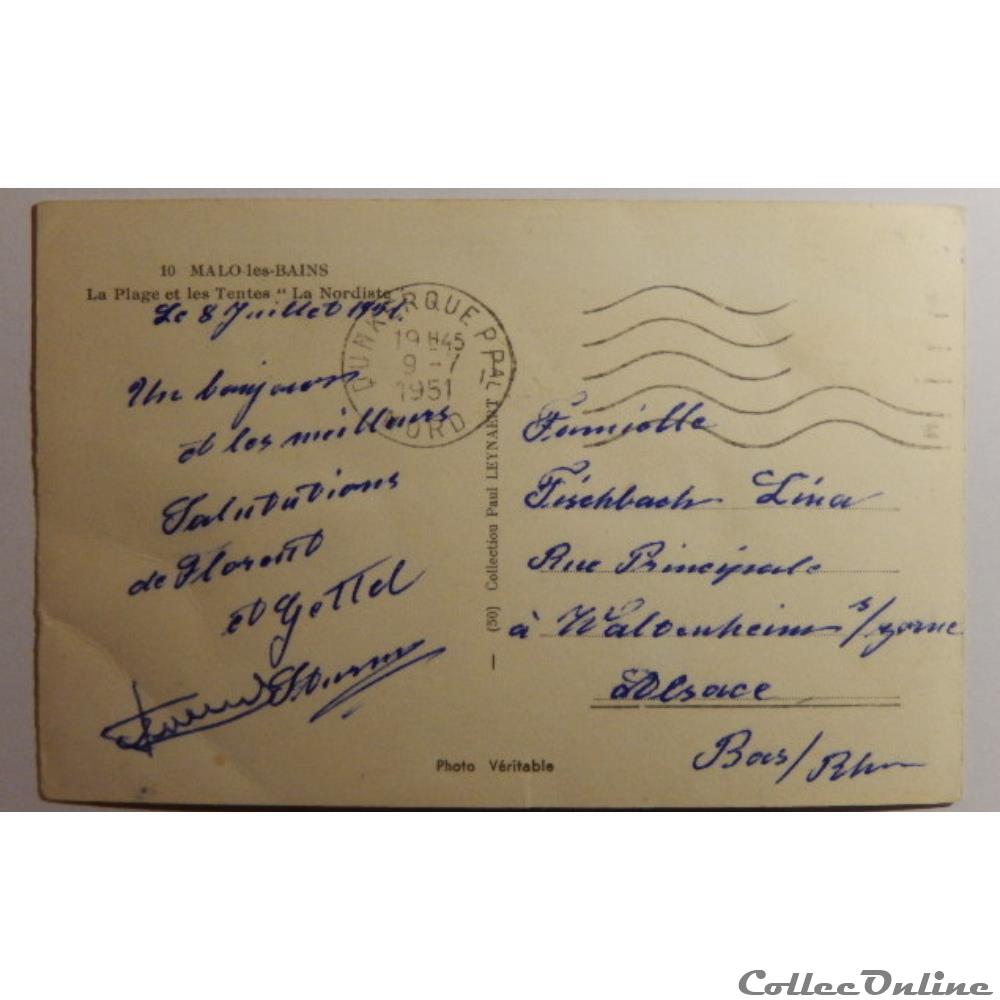 10 MALO-les-BAINS
La Plage et les Tentes " La Nordiste "
Le 8 Juillet 1951.
Un bonjour
et les meilleurs
Salutations
de Florent
et Gettel
Sturm
DUNKERQUE PPAL
19H45
9 - 7
1951
NORD
(50) Collection Paul LEYNAERT
Famielle
Fischbach Lina
Rue Principale
à Waltenheim s/zorne
Alsace
Bas/Rhin
Photo Véritable
CollecOnline